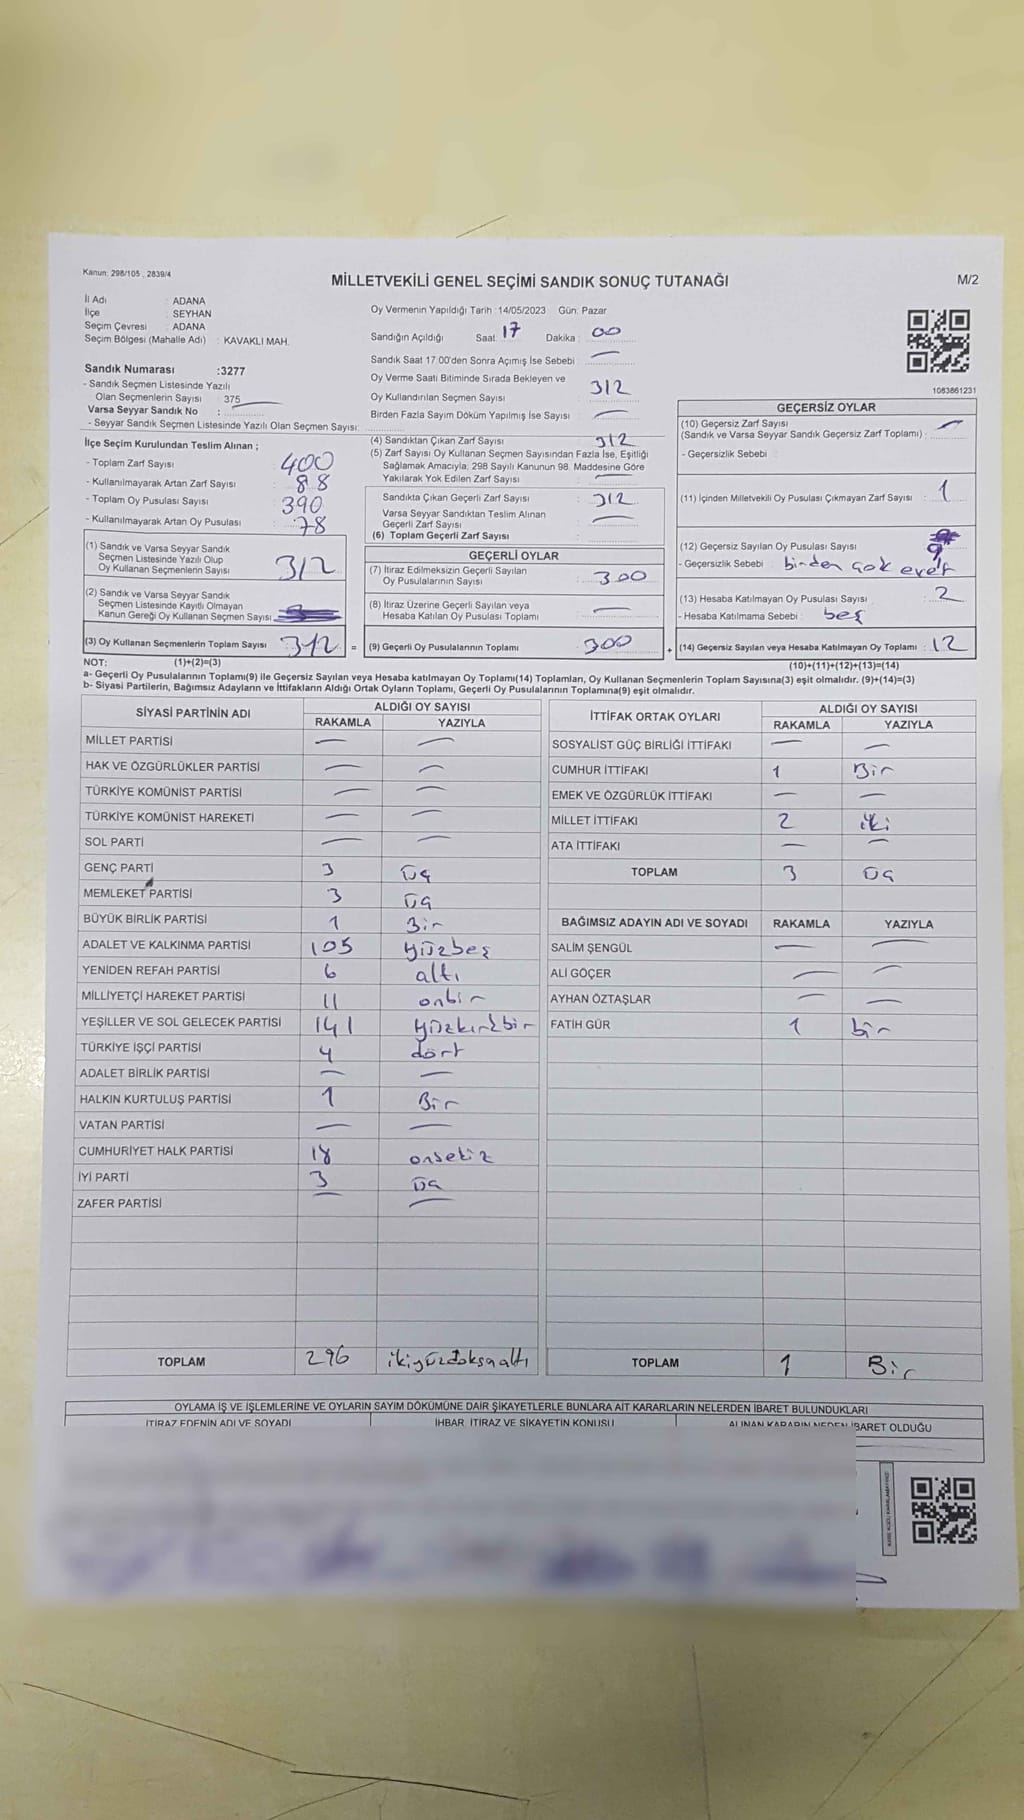 Kanun: 298/105 , 2839/4
MİLLETVEKİLİ GENEL SEÇİMİ SANDIK SONUÇ TUTANAĞI
M/2
İl Adı : ADANA
İlçe : SEYHAN
Seçim Çevresi : ADANA
Seçim Bölgesi (Mahalle Adı) : KAVAKLI MAH.
Sandık Numarası :3277
- Sandık Seçmen Listesinde Yazılı
Olan Seçmenlerin Sayısı : 375
Varsa Seyyar Sandık No :
- Seyyar Sandık Seçmen Listesinde Yazılı Olan Seçmen Sayısı:
Oy Vermenin Yapıldığı Tarih :14/05/2023 Gün: Pazar
Sandığın Açıldığı Saat: 17 Dakika : 00
Sandık Saat 17.00'den Sonra Açımış İse Sebebi : —
Oy Verme Saati Bitiminde Sırada Bekleyen ve
Oy Kullandırılan Seçmen Sayısı : 312
Birden Fazla Sayım Döküm Yapılmış İse Sayısı : —
1083861231
İlçe Seçim Kurulundan Teslim Alınan ;
- Toplam Zarf Sayısı : 400
- Kullanılmayarak Artan Zarf Sayısı : 88
- Toplam Oy Pusulası Sayısı : 390
- Kullanılmayarak Artan Oy Pusulası : 78
(1) Sandık ve Varsa Seyyar Sandık
Seçmen Listesinde Yazılı Olup
Oy Kullanan Seçmenlerin Sayısı : 312
(2) Sandık ve Varsa Seyyar Sandık
Seçmen Listesinde Kayıtlı Olmayan
Kanun Gereği Oy Kullanan Seçmen Sayısı :
(3) Oy Kullanan Seçmenlerin Toplam Sayısı : 312 =
(4) Sandıktan Çıkan Zarf Sayısı : 312
(5) Zarf Sayısı Oy Kullanan Seçmen Sayısından Fazla İse, Eşitliği
Sağlamak Amacıyla; 298 Sayılı Kanunun 98. Maddesine Göre
Yakılarak Yok Edilen Zarf Sayısı : —
Sandıkta Çıkan Geçerli Zarf Sayısı : 312
Varsa Seyyar Sandıktan Teslim Alınan
Geçerli Zarf Sayısı : —
(6) Toplam Geçerli Zarf Sayısı :
GEÇERLİ OYLAR
(7) İtiraz Edilmeksizin Geçerli Sayılan
Oy Pusulalarının Sayısı : 300
(8) İtiraz Üzerine Geçerli Sayılan veya
Hesaba Katılan Oy Pusulası Toplamı : —
(9) Geçerli Oy Pusulalarının Toplamı : 300 +
GEÇERSİZ OYLAR
(10) Geçersiz Zarf Sayısı
(Sandık ve Varsa Seyyar Sandık Geçersiz Zarf Toplamı) : —
- Geçersizlik Sebebi :
(11) İçinden Milletvekili Oy Pusulası Çıkmayan Zarf Sayısı : 1
(12) Geçersiz Sayılan Oy Pusulası Sayısı : 9
- Geçersizlik Sebebi : birden çok evet
(13) Hesaba Katılmayan Oy Pusulası Sayısı : 2
- Hesaba Katılmama Sebebi : boş
(14) Geçersiz Sayılan veya Hesaba Katılmayan Oy Toplamı : 12
NOT: (1)+(2)=(3)
(10)+(11)+(12)+(13)=(14)
a- Geçerli Oy Pusulalarının Toplamı(9) ile Geçersiz Sayılan veya Hesaba katılmayan Oy Toplamı(14) Toplamları, Oy Kullanan Seçmenlerin Toplam Sayısına(3) eşit olmalıdır. (9)+(14)=(3)
b- Siyasi Partilerin, Bağımsız Adayların ve İttifakların Aldığı Ortak Oyların Toplamı, Geçerli Oy Pusulalarının Toplamına(9) eşit olmalıdır.
SİYASİ PARTİNİN ADI ALDIĞI OY SAYISI
RAKAMLA YAZIYLA
MİLLET PARTİSİ — —
HAK VE ÖZGÜRLÜKLER PARTİSİ — —
TÜRKİYE KOMÜNİST PARTİSİ — —
TÜRKİYE KOMÜNİST HAREKETİ — —
SOL PARTİ — —
GENÇ PARTİ 3 üç
MEMLEKET PARTİSİ 3 üç
BÜYÜK BİRLİK PARTİSİ 1 Bir
ADALET VE KALKINMA PARTİSİ 105 yüzbeş
YENİDEN REFAH PARTİSİ 6 altı
MİLLİYETÇİ HAREKET PARTİSİ 11 onbir
YEŞİLLER VE SOL GELECEK PARTİSİ 141 yüzkırkbir
TÜRKİYE İŞÇİ PARTİSİ 4 dört
ADALET BİRLİK PARTİSİ — —
HALKIN KURTULUŞ PARTİSİ 1 Bir
VATAN PARTİSİ — —
CUMHURİYET HALK PARTİSİ 18 onsekiz
İYİ PARTİ 3 üç
ZAFER PARTİSİ — —
TOPLAM 296 ikiyüzdoksanaltı
İTTİFAK ORTAK OYLARI ALDIĞI OY SAYISI
RAKAMLA YAZIYLA
SOSYALİST GÜÇ BİRLİĞİ İTTİFAKI — —
CUMHUR İTTİFAKI 1 Bir
EMEK VE ÖZGÜRLÜK İTTİFAKI — —
MİLLET İTTİFAKI 2 iki
ATA İTTİFAKI — —
TOPLAM 3 üç
BAĞIMSIZ ADAYIN ADI VE SOYADI RAKAMLA YAZIYLA
SALİM ŞENGÜL — —
ALİ GÖÇER — —
AYHAN ÖZTAŞLAR — —
FATİH GÜR 1 bir
TOPLAM 1 Bir
OYLAMA İŞ VE İŞLEMLERİNE VE OYLARIN SAYIM DÖKÜMÜNE DAİR ŞİKAYETLERLE BUNLARA AİT KARARLARIN NELERDEN İBARET BULUNDUKLARI
İTİRAZ EDENİN ADI VE SOYADI İHBAR, İTİRAZ VE ŞİKAYETİN KONUSU ALINAN KARARIN NEDEN İBARET OLDUĞU